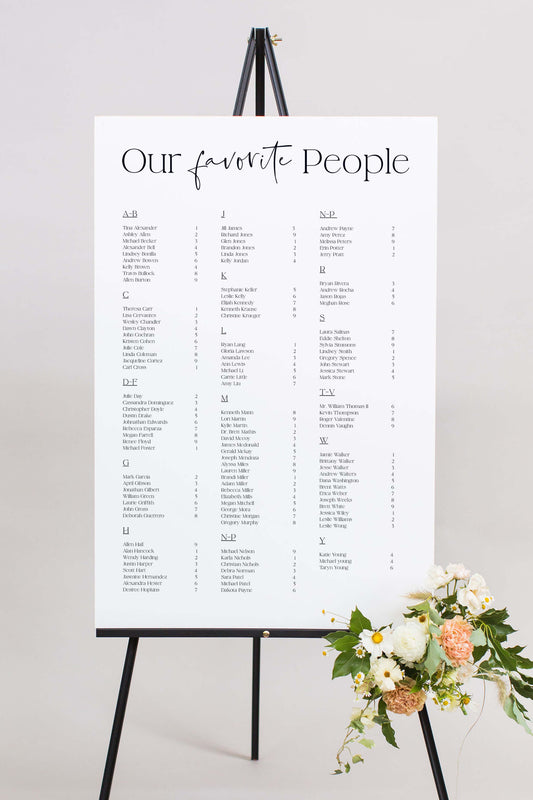 Our favorite People
A-B
Tina Alexander 1
Ashley Allen 2
Michael Becker 3
Alexander Bell 4
Lindsey Bonilla 5
Andrew Bowers 6
Kelly Brown 4
Travis Bullock 8
Allen Burton 9
C
Theresa Carr 1
Lisa Cervantes 2
Wesley Chandler 3
Dawn Clayton 4
John Cochran 5
Kristen Cohen 6
Julie Cole 7
Linda Coleman 8
Jacqueline Cortez 9
Carl Cross 1
D-F
Julie Day 2
Cassandra Dominguez 3
Christopher Doyle 4
Dustin Drake 5
Johnathan Edwards 6
Rebecca Esparza 7
Megan Farrell 8
Renee Floyd 9
Michael Foster 1
G
Mark Garcia 2
April Gibson 3
Jonathan Gilbert 4
William Green 5
Laurie Griffith 6
John Gross 7
Deborah Guerrero 8
H
Allen Hall 9
Alan Hancock 1
Wendy Harding 2
Justin Harper 3
Scott Hart 4
Jasmine Hernandez 5
Alexandra Hester 6
Desiree Hopkins 7
J
Jill James 5
Richard Jones 9
Glen Jones 1
Brandon Jones 2
Linda Jones 3
Kelly Jordan 4
K
Stephanie Keller 5
Leslie Kelly 6
Elijah Kennedy 7
Kenneth Krause 8
Christine Krueger 9
L
Ryan Lang 1
Gloria Lawson 2
Amanda Lee 3
Ann Lewis 4
Michael Li 5
Carrie Little 6
Amy Liu 7
M
Kenneth Mann 8
Lori Martin 9
Kylie Martin 1
Dr. Brett Mathis 2
David Mccoy 3
James Mcdonald 4
Gerald Mckay 5
Joseph Mendoza 7
Alyssa Miles 8
Lauren Miller 9
Brandi Miller 1
Adam Miller 2
Rebecca Miller 3
Elizabeth Mills 4
Megan Mitchell 5
George Mora 6
Christine Morgan 7
Gregory Murphy 8
N-P
Michael Nelson 9
Karla Nichols 1
Christian Nichols 2
Debra Norman 3
Sara Patel 4
Michael Patel 5
Dakota Payne 6
N-P
Andrew Payne 7
Amy Perez 8
Melissa Peters 9
Erin Potter 1
Jerry Pratt 2
R
Bryan Rivera 3
Andrew Rocha 4
Jason Rojas 5
Meghan Rose 6
S
Laura Salinas 7
Eddie Shelton 8
Sylvia Simmons 9
Lindsey Smith 1
Gregory Spence 2
John Stewart 3
Jessica Stewart 4
Mark Stone 5
T-V
Mr. William Thomas II 6
Kevin Thompson 7
Roger Valentine 8
Dennis Vaughn 9
W
Jamie Walker 1
Brittany Walker 2
Jesse Walker 3
Andrew Walters 4
Dana Washington 5
Brent Watts 6
Erica Weber 7
Joseph Weeks 8
Bret White 9
Jessica Wiley 1
Leslie Williams 2
Leslie Wong 3
Y
Katie Young 4
Michael young 4
Taryn Young 6